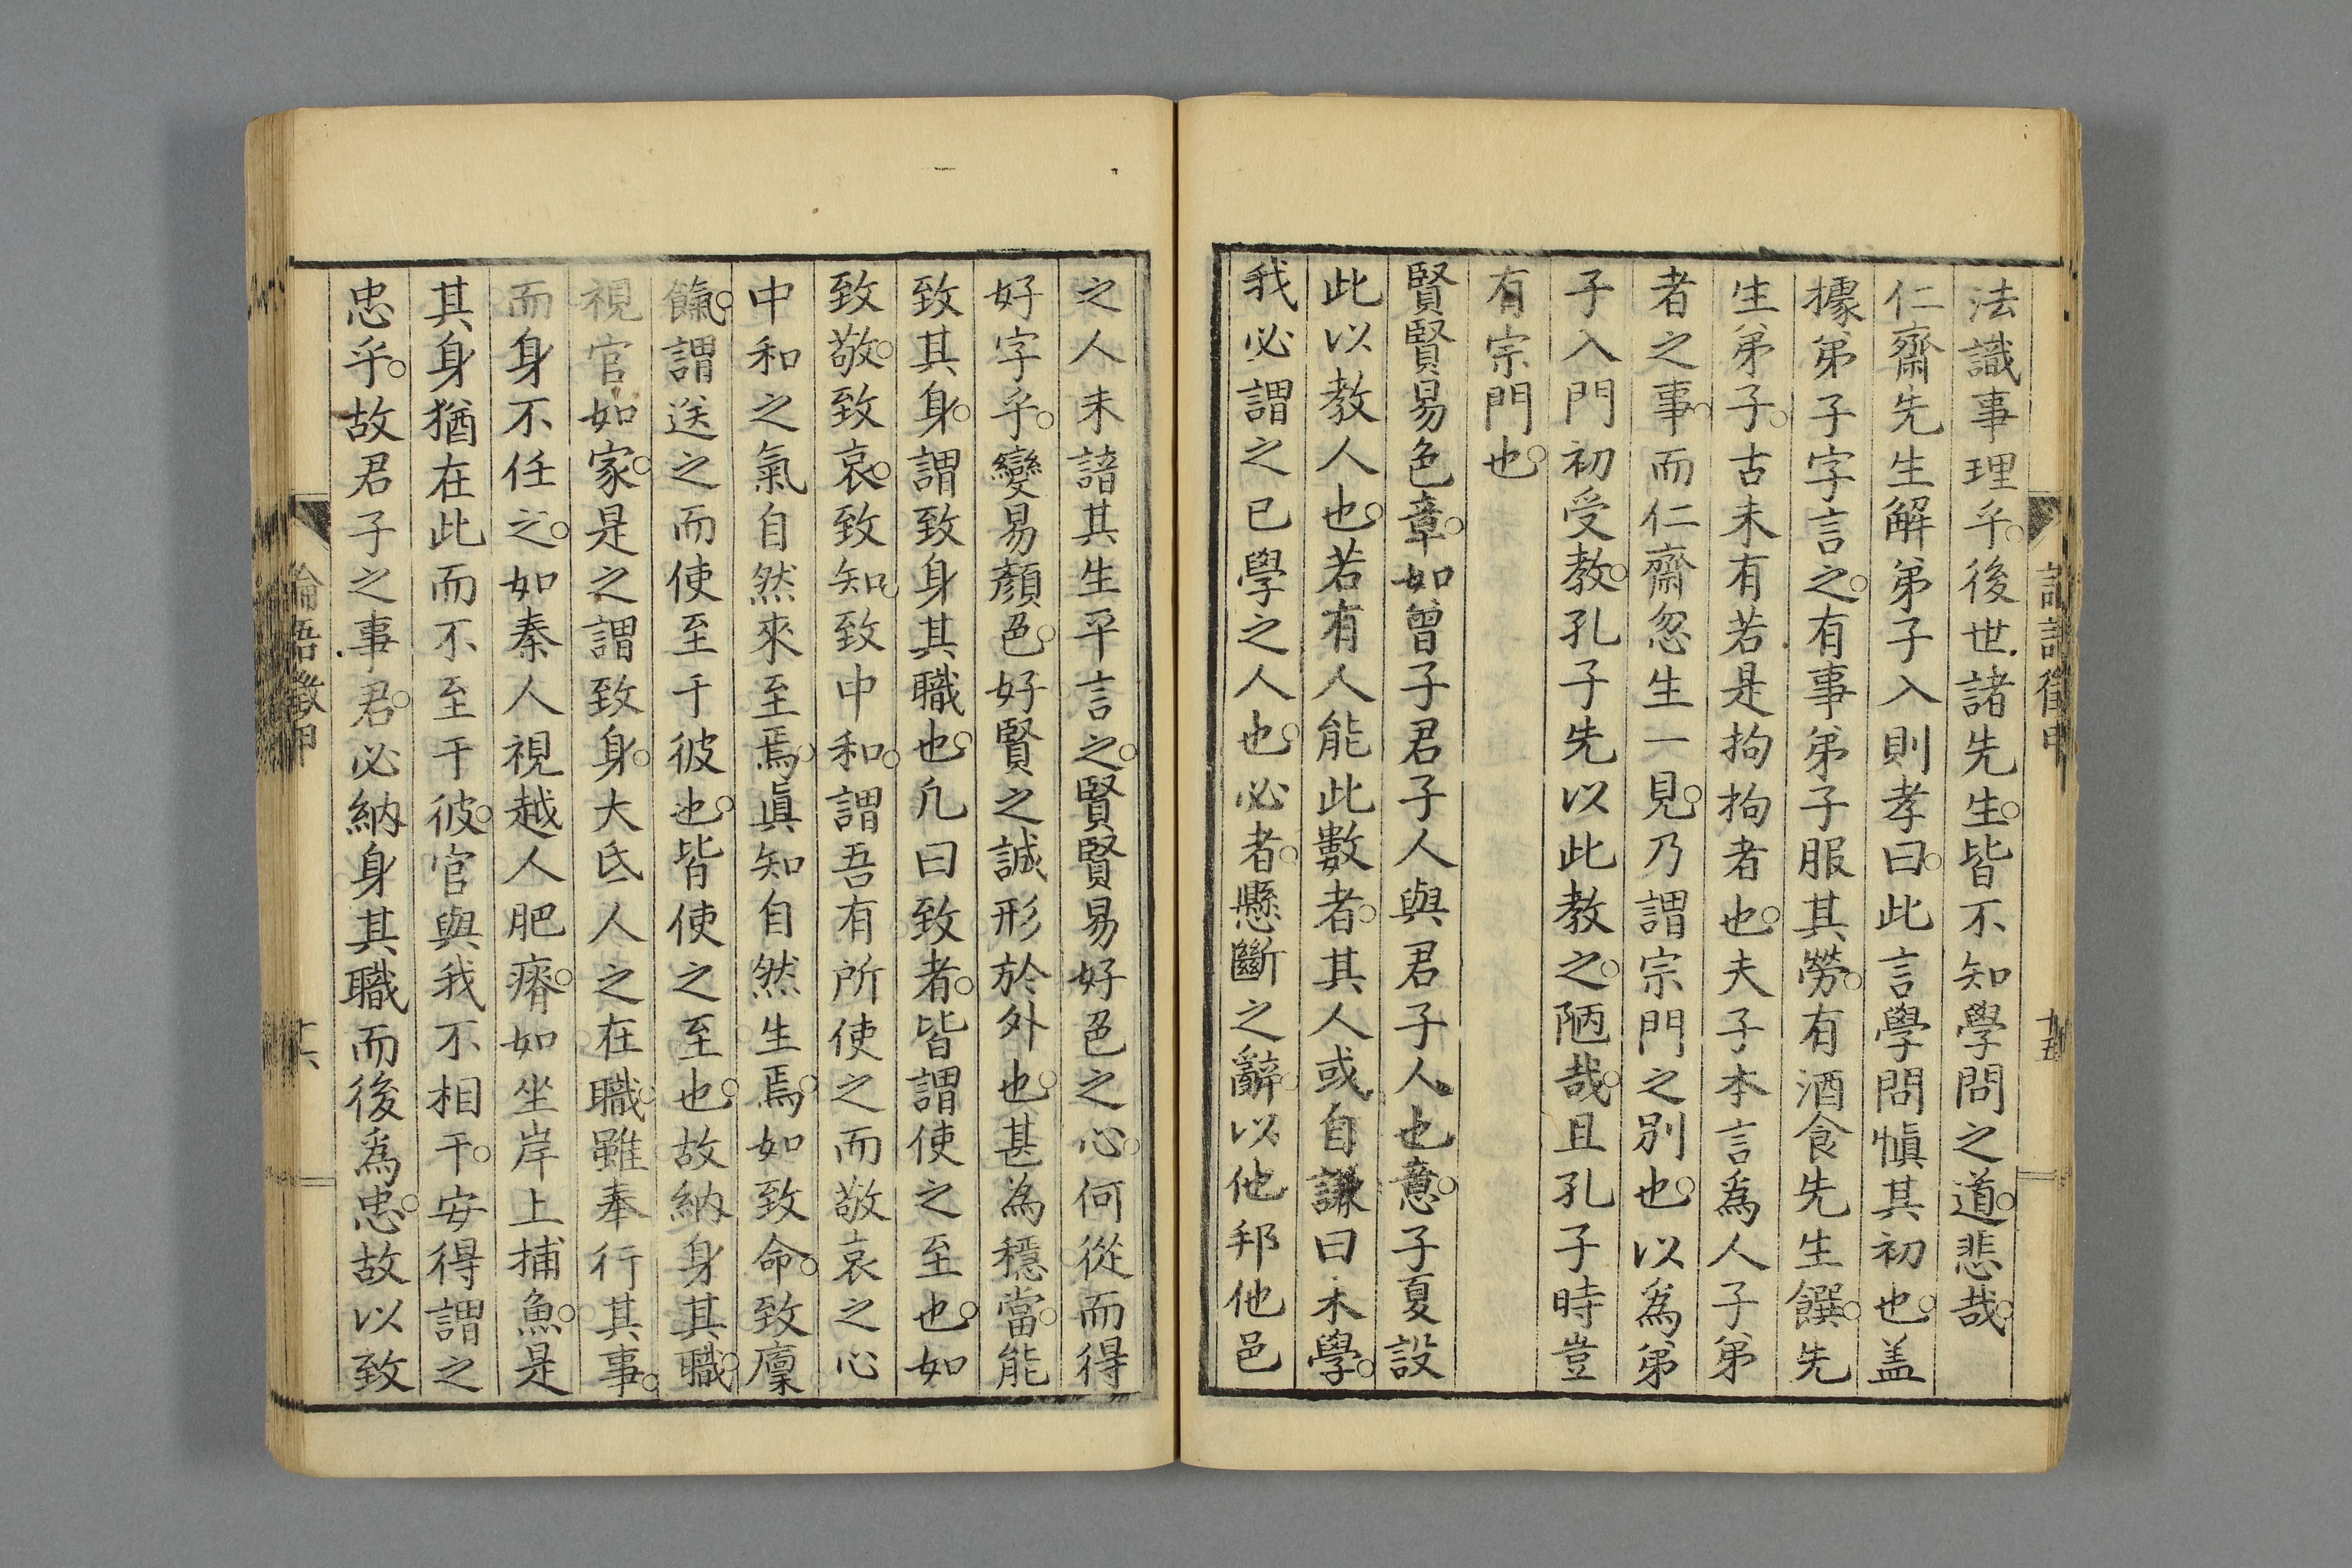 法識事理乎。後世諸先生。皆不知學問之道。悲哉。
仁齋先生解弟子入則孝曰。此言學問愼其初也。盖
據弟子字言之。有事弟子服其勞。有酒食先生饌。先
生弟子。古未有若是拘拘者也。夫子本言爲人子弟
者之事。而仁齋忽生一見。乃謂宗門之別也。以爲弟
子入門初受教。孔子先以此教之。陋哉。且孔子時豈
有宗門也。
賢賢易色章。如曾子君子人與君子人也。意子夏設
此以教人也。若有人能此數者。其人或自謙曰未學。
我必謂之已學之人也。必者。懸斷之辭。以他邦他邑
之人未諳其生平言之。賢賢易好色之心。何從而得
好字乎。變易顏色。好賢之誠形於外也。甚為穩當。能
致其身。謂致身其職也。凡曰致者。皆謂使之至也。如
致敬。致哀。致知。致中和。謂吾有所使之而敬哀之心
中和之氣自然來至焉。眞知自然生焉。如致命。致廩
餼。謂送之而使至于彼也。皆使之至也。故納身其職。
視官如家。是之謂致身。大氐人之在職。雖奉行其事。
而身不任之。如秦人視越人肥瘠。如坐岸上捕魚。是
其身猶在此而不至于彼。官與我不相干。安得謂之
忠乎。故君子之事君。必納身其職而後爲忠。故以致
論語徵甲
十六